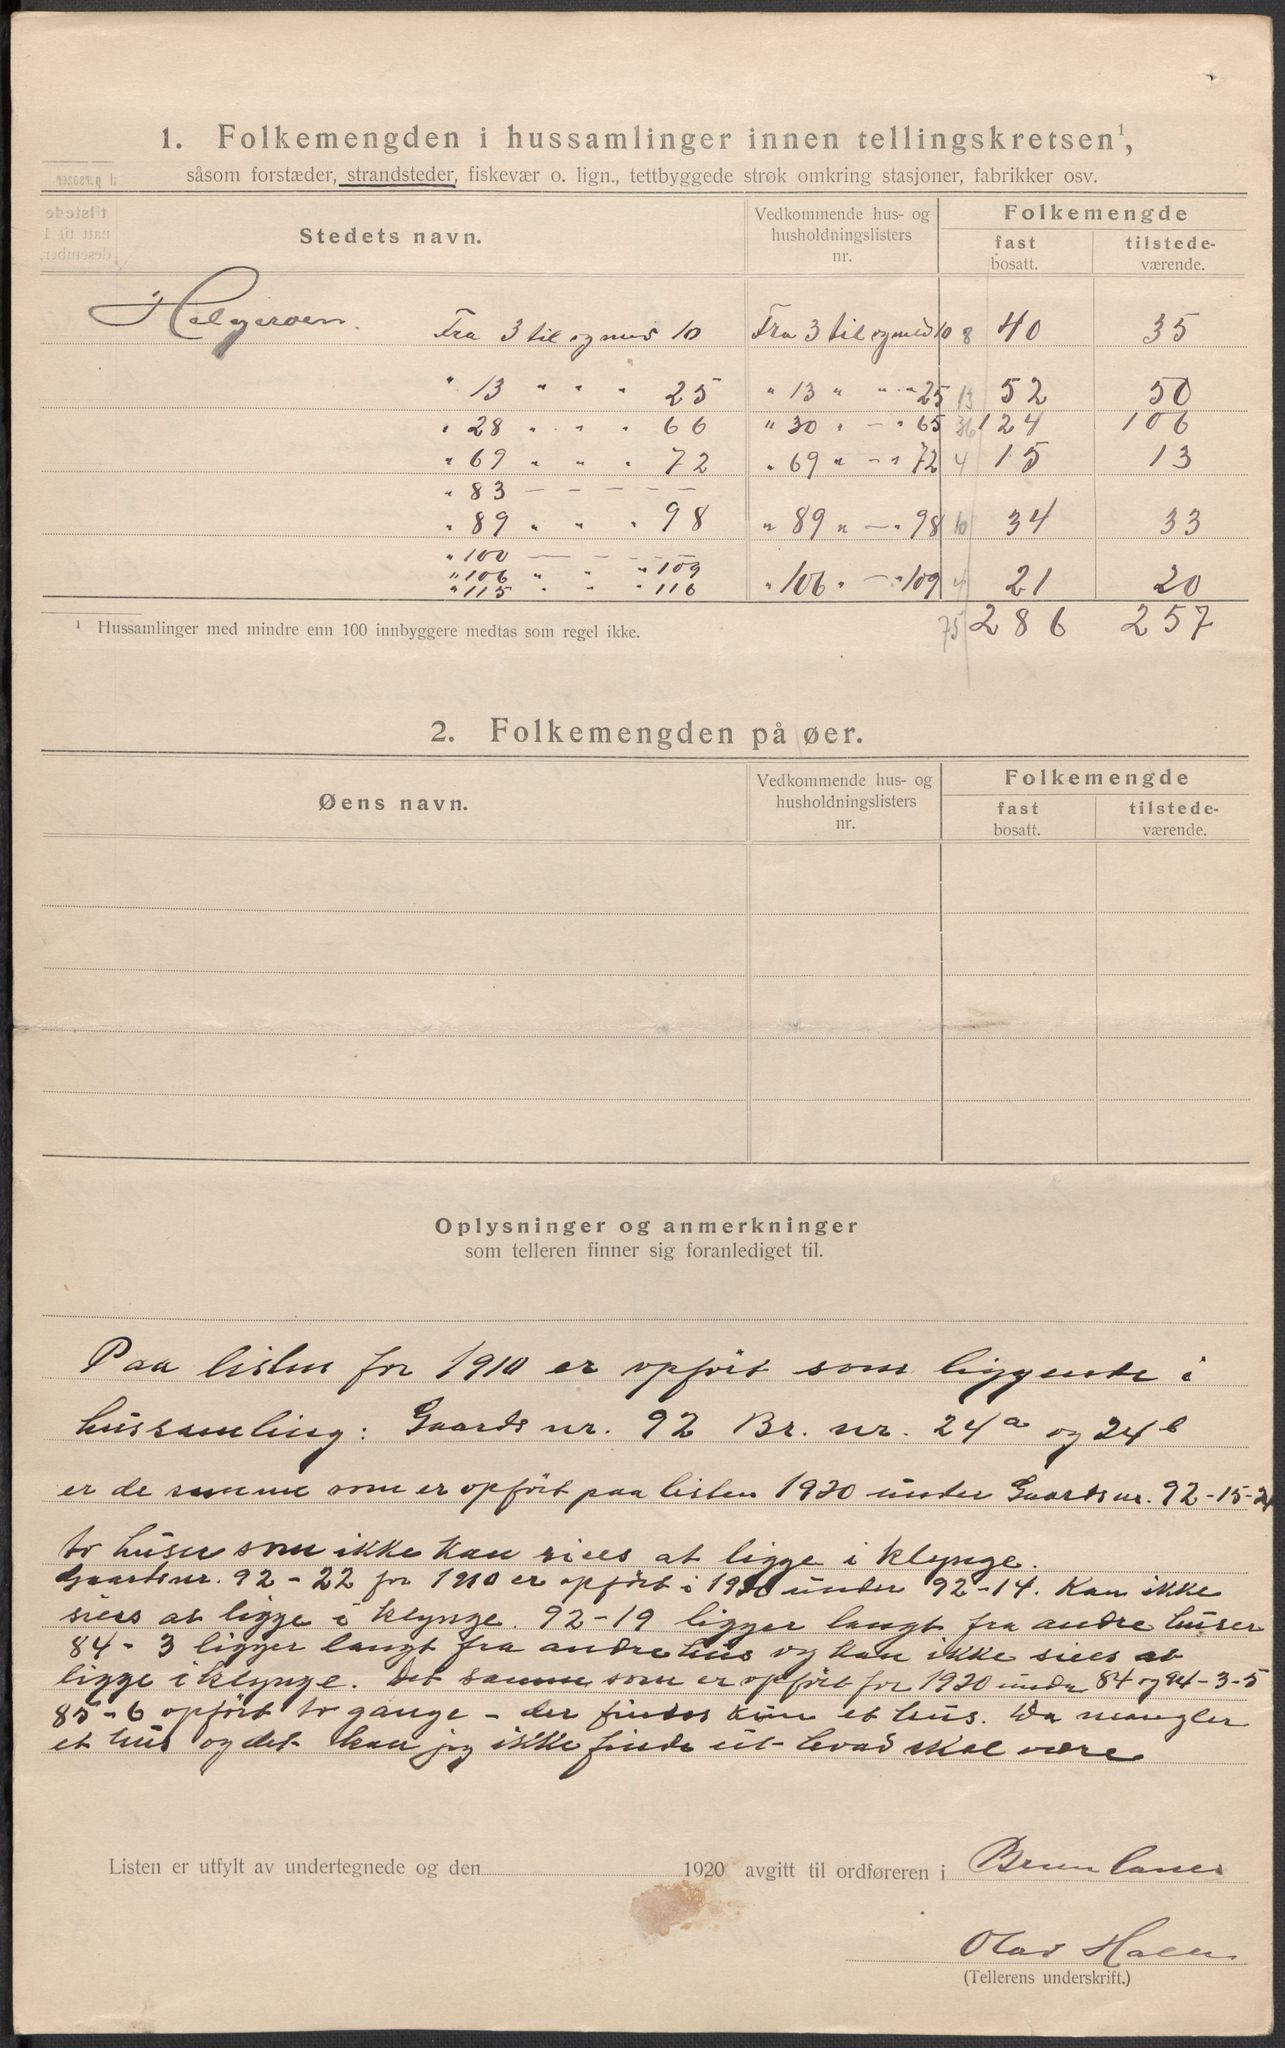 1. Folkemengden i hussamlinger innen tellingskretsen¹,
såsom forstæder, strandsteder, fiskevær o. lign., tettbyggede strøk omkring stasjoner, fabrikker osv.
Stedets navn. Vedkommende hus- og husholdningslisters nr. Folkemengde
fast bosatt. tilstede-værende.
Helgeroen. Fra 3 til og med 10 Fra 3 til og med 10 8 40 35
" 13 " " " 25 " 13 " " " 25 13 52 50
" 28 " " " 66 " 30 " — " 65 36 124 106
" 69 " " " 72 " 69 " — " 72 4 15 13
" 83 — — — — —
" 89 " " " 98 " 89 " — " 98 10 34 33
" 100 — — — — —
" 106 " " " 109 " 106 " — " 109 4 21 20
" 115 " " " 116
75 286 257
¹ Hussamlinger med mindre enn 100 innbyggere medtas som regel ikke.
2. Folkemengden på øer.
Øens navn. Vedkommende hus- og husholdningslisters nr. Folkemengde
fast bosatt. tilstede-værende.
Oplysninger og anmerkninger
som telleren finner sig foranlediget til.
Paa listen for 1910 er opført som liggende i
hussamling: Gaards nr. 92 Br. nr. 24a og 24b
er de samme som er opført paa listen 1920 under Gaardsnr. 92-15-24
to huser som ikke kan siees at ligge i klynge.
Gaardsnr. 92-22 for 1910 er opført i 1920 under 92-14. Kan ikke
siees at ligge i klynge. 92-19 ligger langt fra andre huser
84-3 ligger langt fra andre hus og kan ikke siees at
ligge i klynge. Det samme som er opført for 1920 under 84 og 94-3-5
85-6 opført to gange - der findes kun et hus. Da mangler
et hus og det kan jeg ikke finde ut hvad skal være
Listen er utfylt av undertegnede og den 1920 avgitt til ordføreren i Brunlanes
Olav Halen
(Tellerens underskrift.)